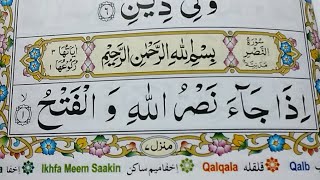 وَلِيَ دِيْنِ ٦
سُوْرَةُ النَّصْرِ
بِسْمِ اللّٰهِ الرَّحْمٰنِ الرَّحِيْمِ
اٰيَاتُهَا ٣
رُكُوْعُهَا ١
اِذَا جَآءَ نَصْرُ اللّٰهِ وَ الْفَتْحُ ۙ ١
منزل ٧
اخفا Ikhfa Meem Saakin اخفا میم ساکن Qalqala قلقلہ Qalb